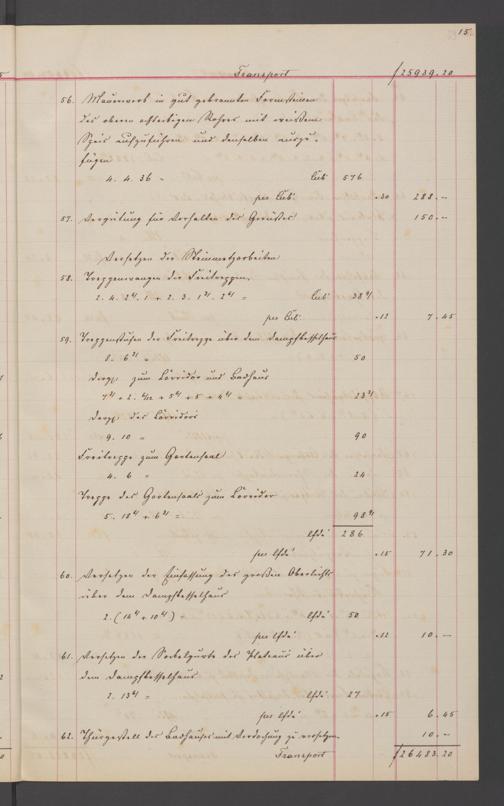 15.
Transport f 25939.20
56. Mauerwerk in gut gebrannten Formsteinen
des oberen achteckigen Rohres mit weißem
Speis aufzuführen und denselben auszu-
fugen
4. 4. 36 = Cub' 576
per Cub' .30 288.–
57. Vergütung für Vorhalten des Gerüstes 150.–
Versetzen der Steinmetzarbeiten
58. Treppenwangen der Freitreppen.
per Cub' .12 7.45
59. Treppenstufen der Freitreppe über dem Dampfkesselhaus
50
dergl. zum Corridor und Badhaus
dergl. des Corridors
9. 10 = 90
Freitreppe zum Gartensaal
4. 6 = 24
Treppe des Gartensaals zum Corridor
lfde' 286
per lfde' .15 71.30
60. Versetzen der Einfassung des großen Oberlichts
über dem Dampfkesselhaus
lfde' 50
per lfde' .12 10.–
61. Versetzen der Sockelgurte des Plateaus über
dem Dampfkesselhaus
lfde' 27
per lfde' .15 6.45
62. Thürgestell des Badhauses mit Verdachung zu versetzen. 10.–
Transport f 26483.20